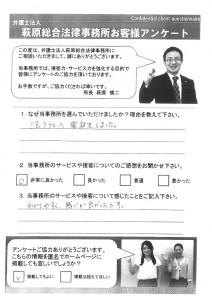 Confidential client questionnaire
弁護士法人
萩原総合法律事務所お客様アンケート
この度は、弁護士法人萩原総合法律事務所に
ご相談いただきまして、誠にありがとうございます。
当事務所では、接客力・サービス力を強化する目的で
皆様にアンケートのご協力を頂いております。
お手数ですが、ご協力くだされば幸いです。
所長 萩原 慎二
1. なぜ当事務所を選んでいただけましたか？理由を教えて下さい。
法テラスへ電話をしました。
2. 当事務所のサービスや接客についてのご感想をお聞かせ下さい。
非常に良かった 良かった 普通 悪かった
3. 当事務所のサービスや接客について感じたことをご記入下さい。
わかりやすく、感じが良かったです。
アンケートご協力ありがとうございます。
こちらの情報を匿名でホームページに
掲載しても宜しいでしょうか？
掲載してもよい 掲載は控えてほしい